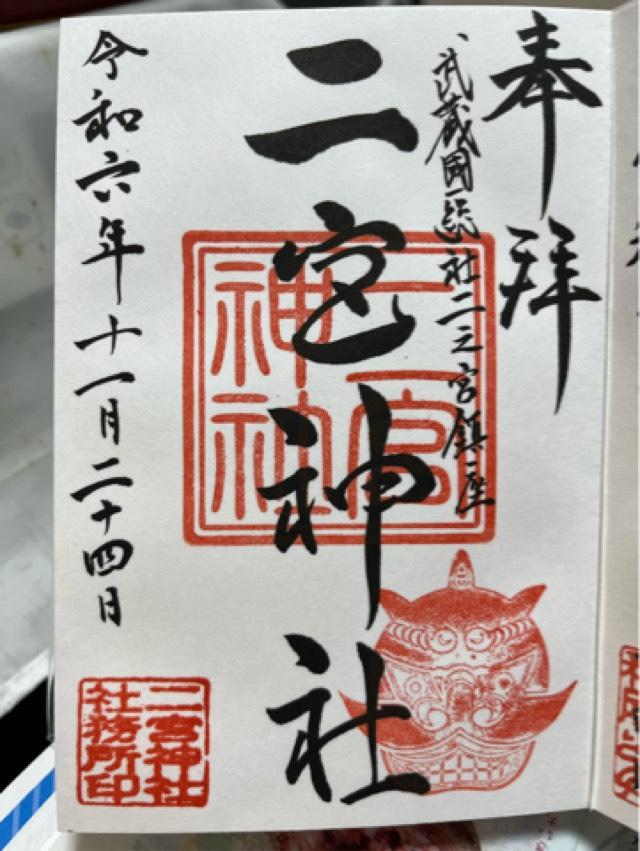 奉拝
武蔵國総社二之宮鎮座
二宮神社
二宮
神社
令和六年十一月二十四日
二宮神社
社務所印